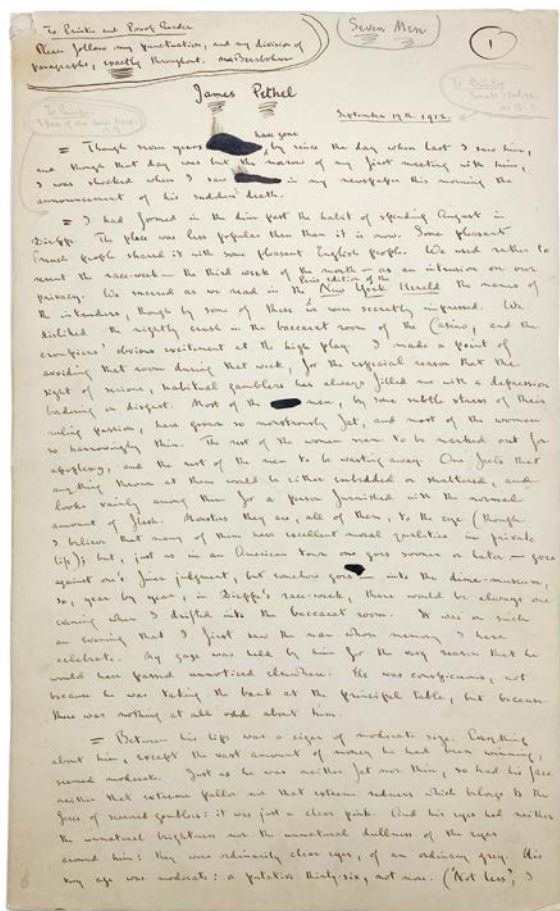 To Printer and Proof Reader
Please follow my punctuation, and my division of
paragraphs, exactly throughout. Max Beerbohm
Seven Men
1
James Pethel
To Printer
To Printer
September 17th, 1912.
have gone
= Though seven years by since the day when last I saw him,
and though that day was but the morrow of my first meeting with him,
I was shocked when I saw in my newspaper this morning the
announcement of his sudden death.
= I had formed in the dim past the habit of spending August in
Dieppe. The place was less popular then than it is now. Some pleasant
French people shared it with some pleasant English people. We used rather to
resent the race-week — the third week of the month — as an intrusion on our
Paris edition of the
privacy. We sneered as we read in the New York Herald the names of
the intruders, though by some of these we were secretly impressed. We
disliked the nightly crush in the baccarat room of the Casino, and the
croupiers' obvious excitement at the high play. I made a point of
avoiding that room during that week, for the especial reason that the
sight of serious, habitual gamblers has always filled me with a depression
bordering on disgust. Most of the men, by some subtle stress of their
ruling passion, have grown so monstrously fat, and most of the women
so harrowingly thin. The rest of the women seem to be marked out for
apoplexy, and the rest of the men to be wasting away. One feels that
anything thrown at them would be either embedded or shattered, and
looks vainly among them for a person furnished with the normal
amount of flesh. Monsters they are, all of them, to the eye (though
I believe that many of them have excellent moral qualities in private
life); but, just as in an American town one goes sooner or later — goes
against one's finer judgment, but somehow goes — into the dime-museum,
so, year by year, in Dieppe's race-week, there would be always one
evening when I drifted into the baccarat room. It was on such
an evening that I first saw the man whose memory I here
celebrate. My gaze was held by him for the very reason that he
would have passed unnoticed elsewhere. He was conspicuous, not
because he was taking the bank at the principal table, but because
there was nothing at all odd about him.
= Between his lips was a cigar of moderate size. Everything
about him, except the vast amount of money he had been winning,
seemed moderate. Just as he was neither fat nor thin, so had his face
neither that extreme pallor nor that extreme redness which belongs to the
faces of seasoned gamblers: it was just a clear pink. And his eyes had neither
the unnatural brightness nor the unnatural dullness of the eyes
around him: they were ordinarily clear eyes, of an ordinary grey. His
very age was moderate: a putative thirty-six, not more. ("Not less", I